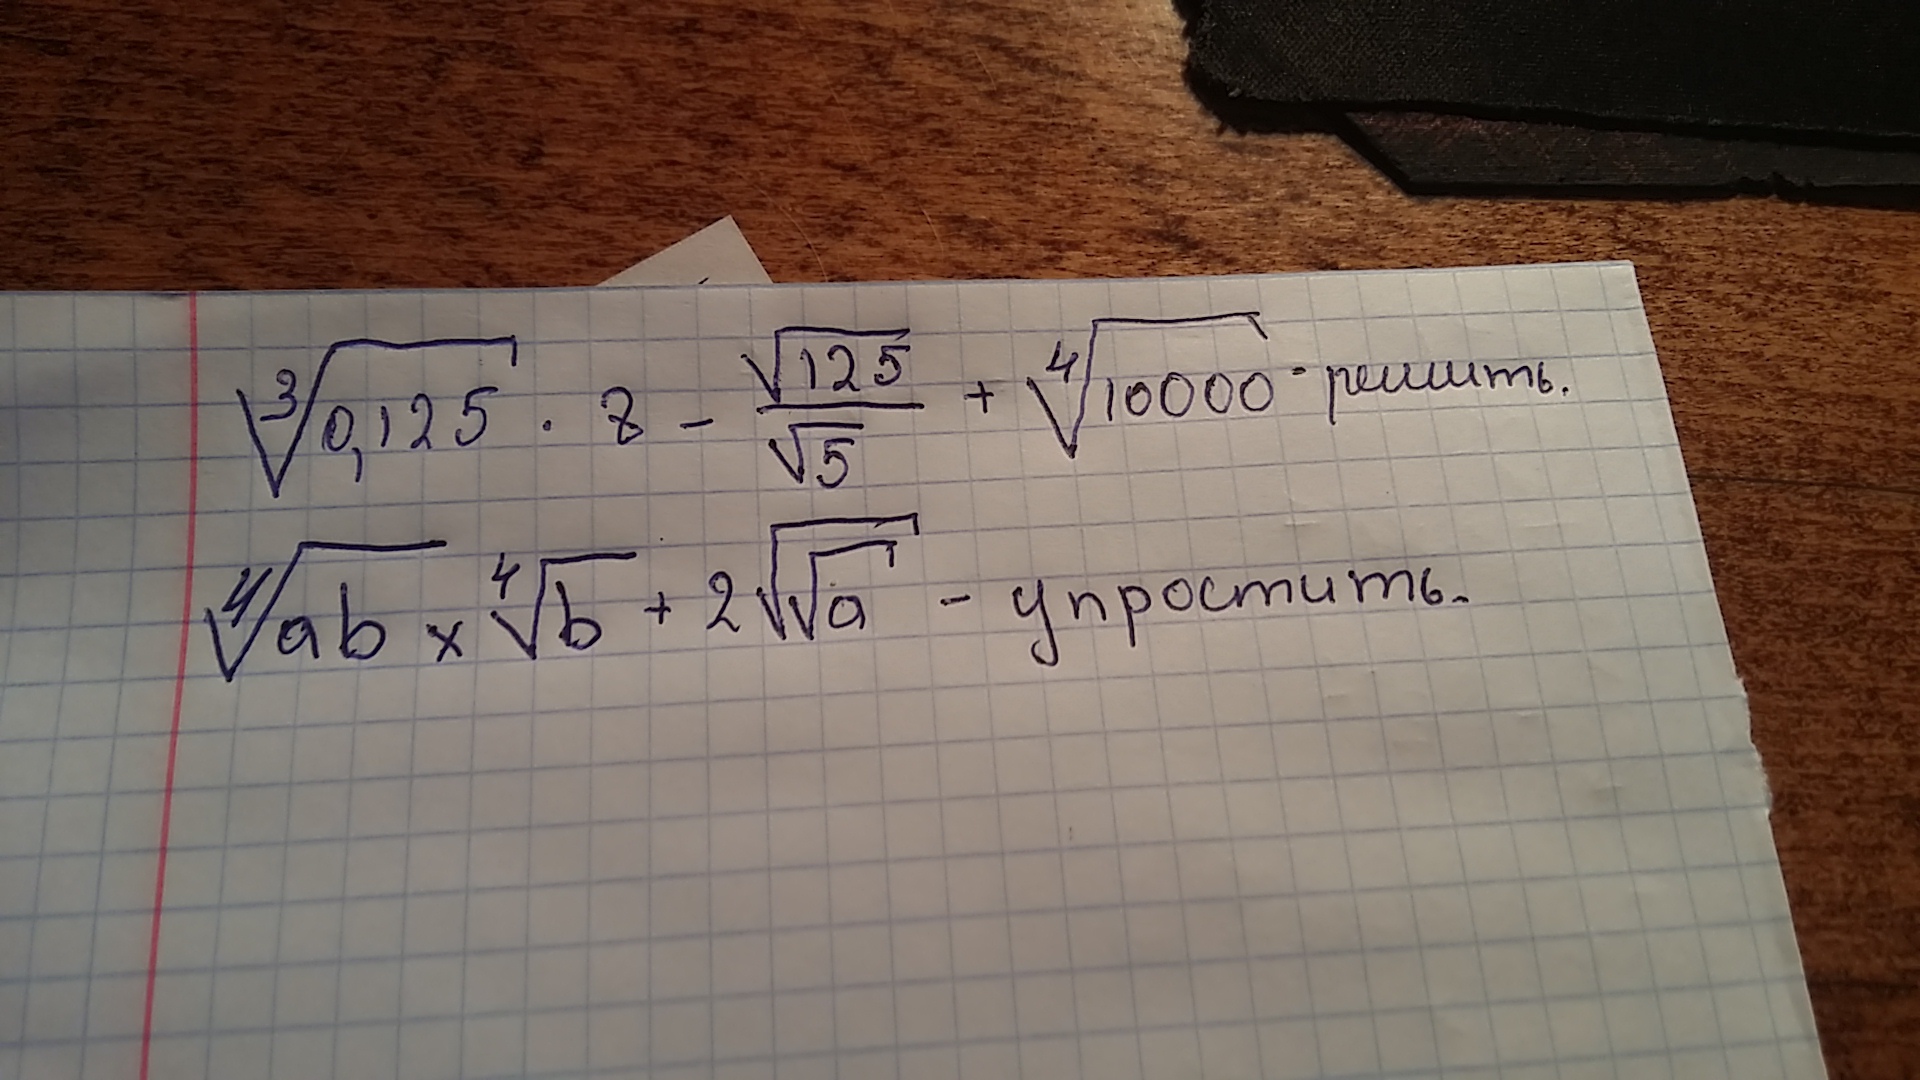 ∛0,125 · 8 − √125/√5 + ∜10000 - решить.
∜ab x ∜b + 2√√a - упростить.